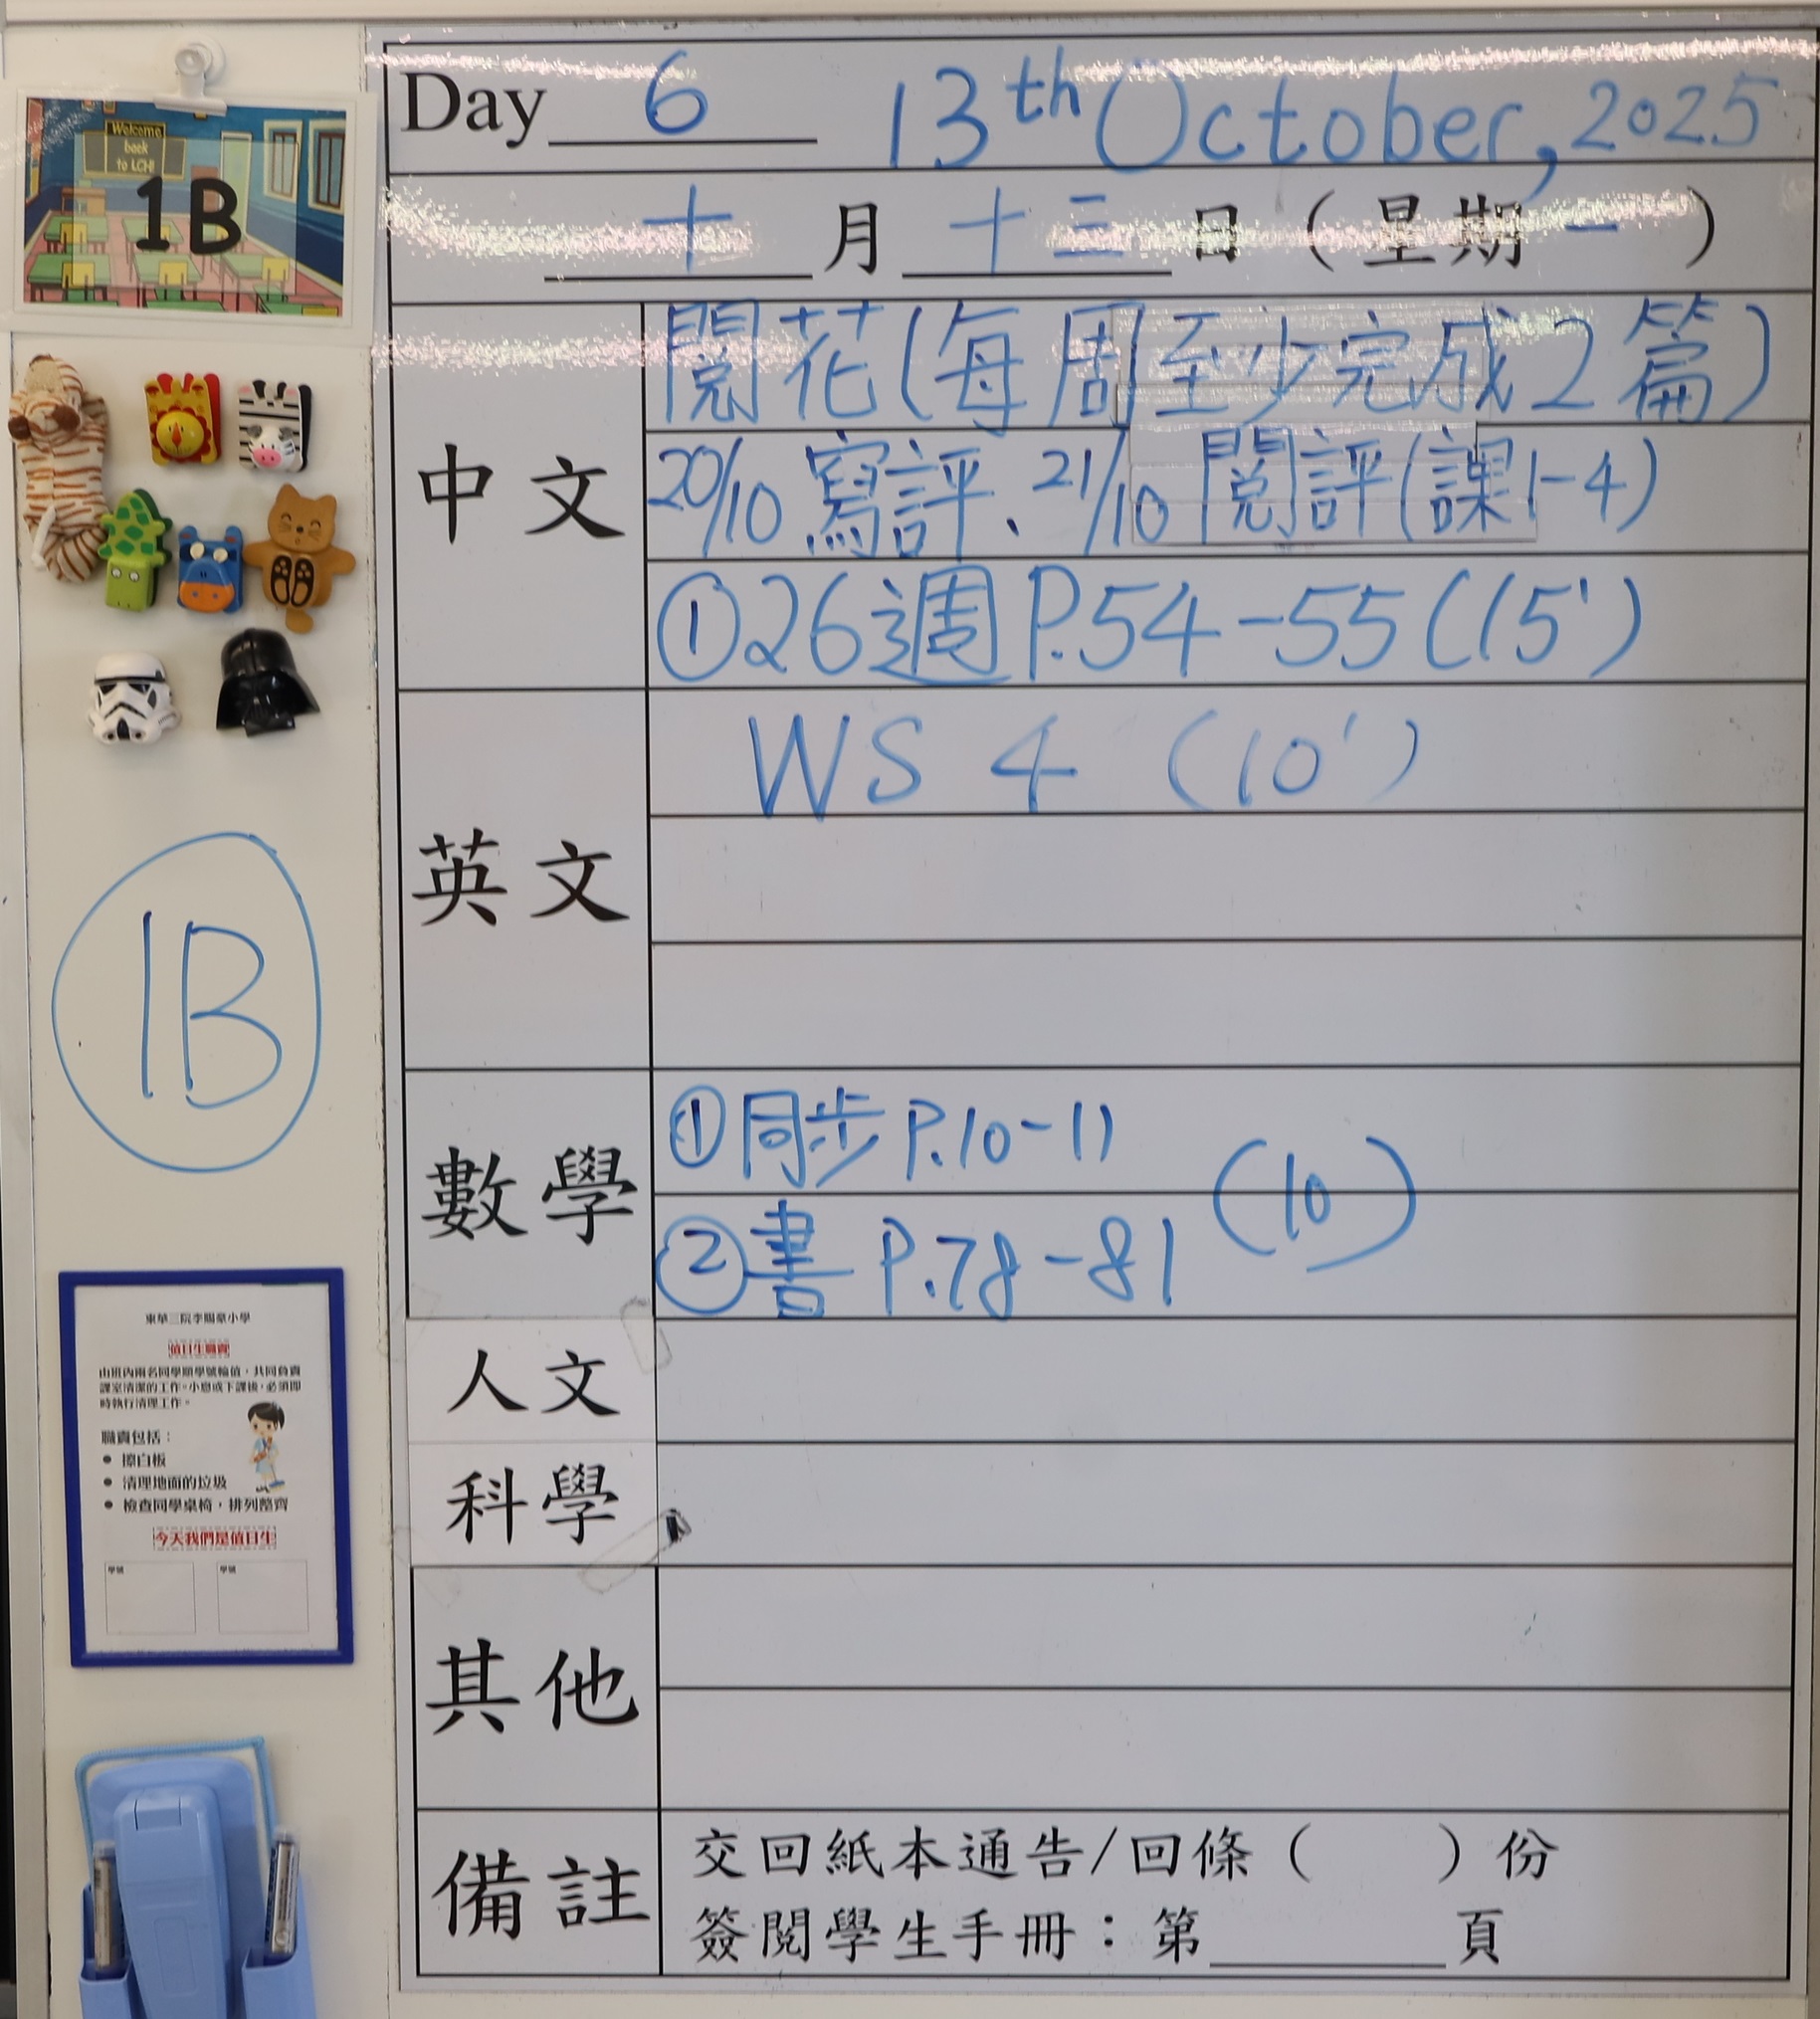 Day 6 13th October, 2025
十 月 十三 日 ( 星期 一 )
Welcome
back
to LCH!
1B
中文
閱花(每周至少完成2篇)
20/10 寫評、21/10 閱評(課1-4)
①26週P.54-55(15')
英文
WS 4 (10')
1B
數學
①同步 P.10-11
(10)
②書 P.78-81
人文
科學
其他
備註
交回紙本通告/回條( )份
簽閱學生手冊:第______頁
東華三院李賜豪小學
值日生職責
由班內兩名同學順學號輪值,共同負責
課室清潔的工作。小息或下課後,必須即
時執行清理工作。
職責包括:
• 擦白板
• 清理地面的垃圾
• 檢查同學桌椅,排列整齊
今天我們是值日生
學號 學號